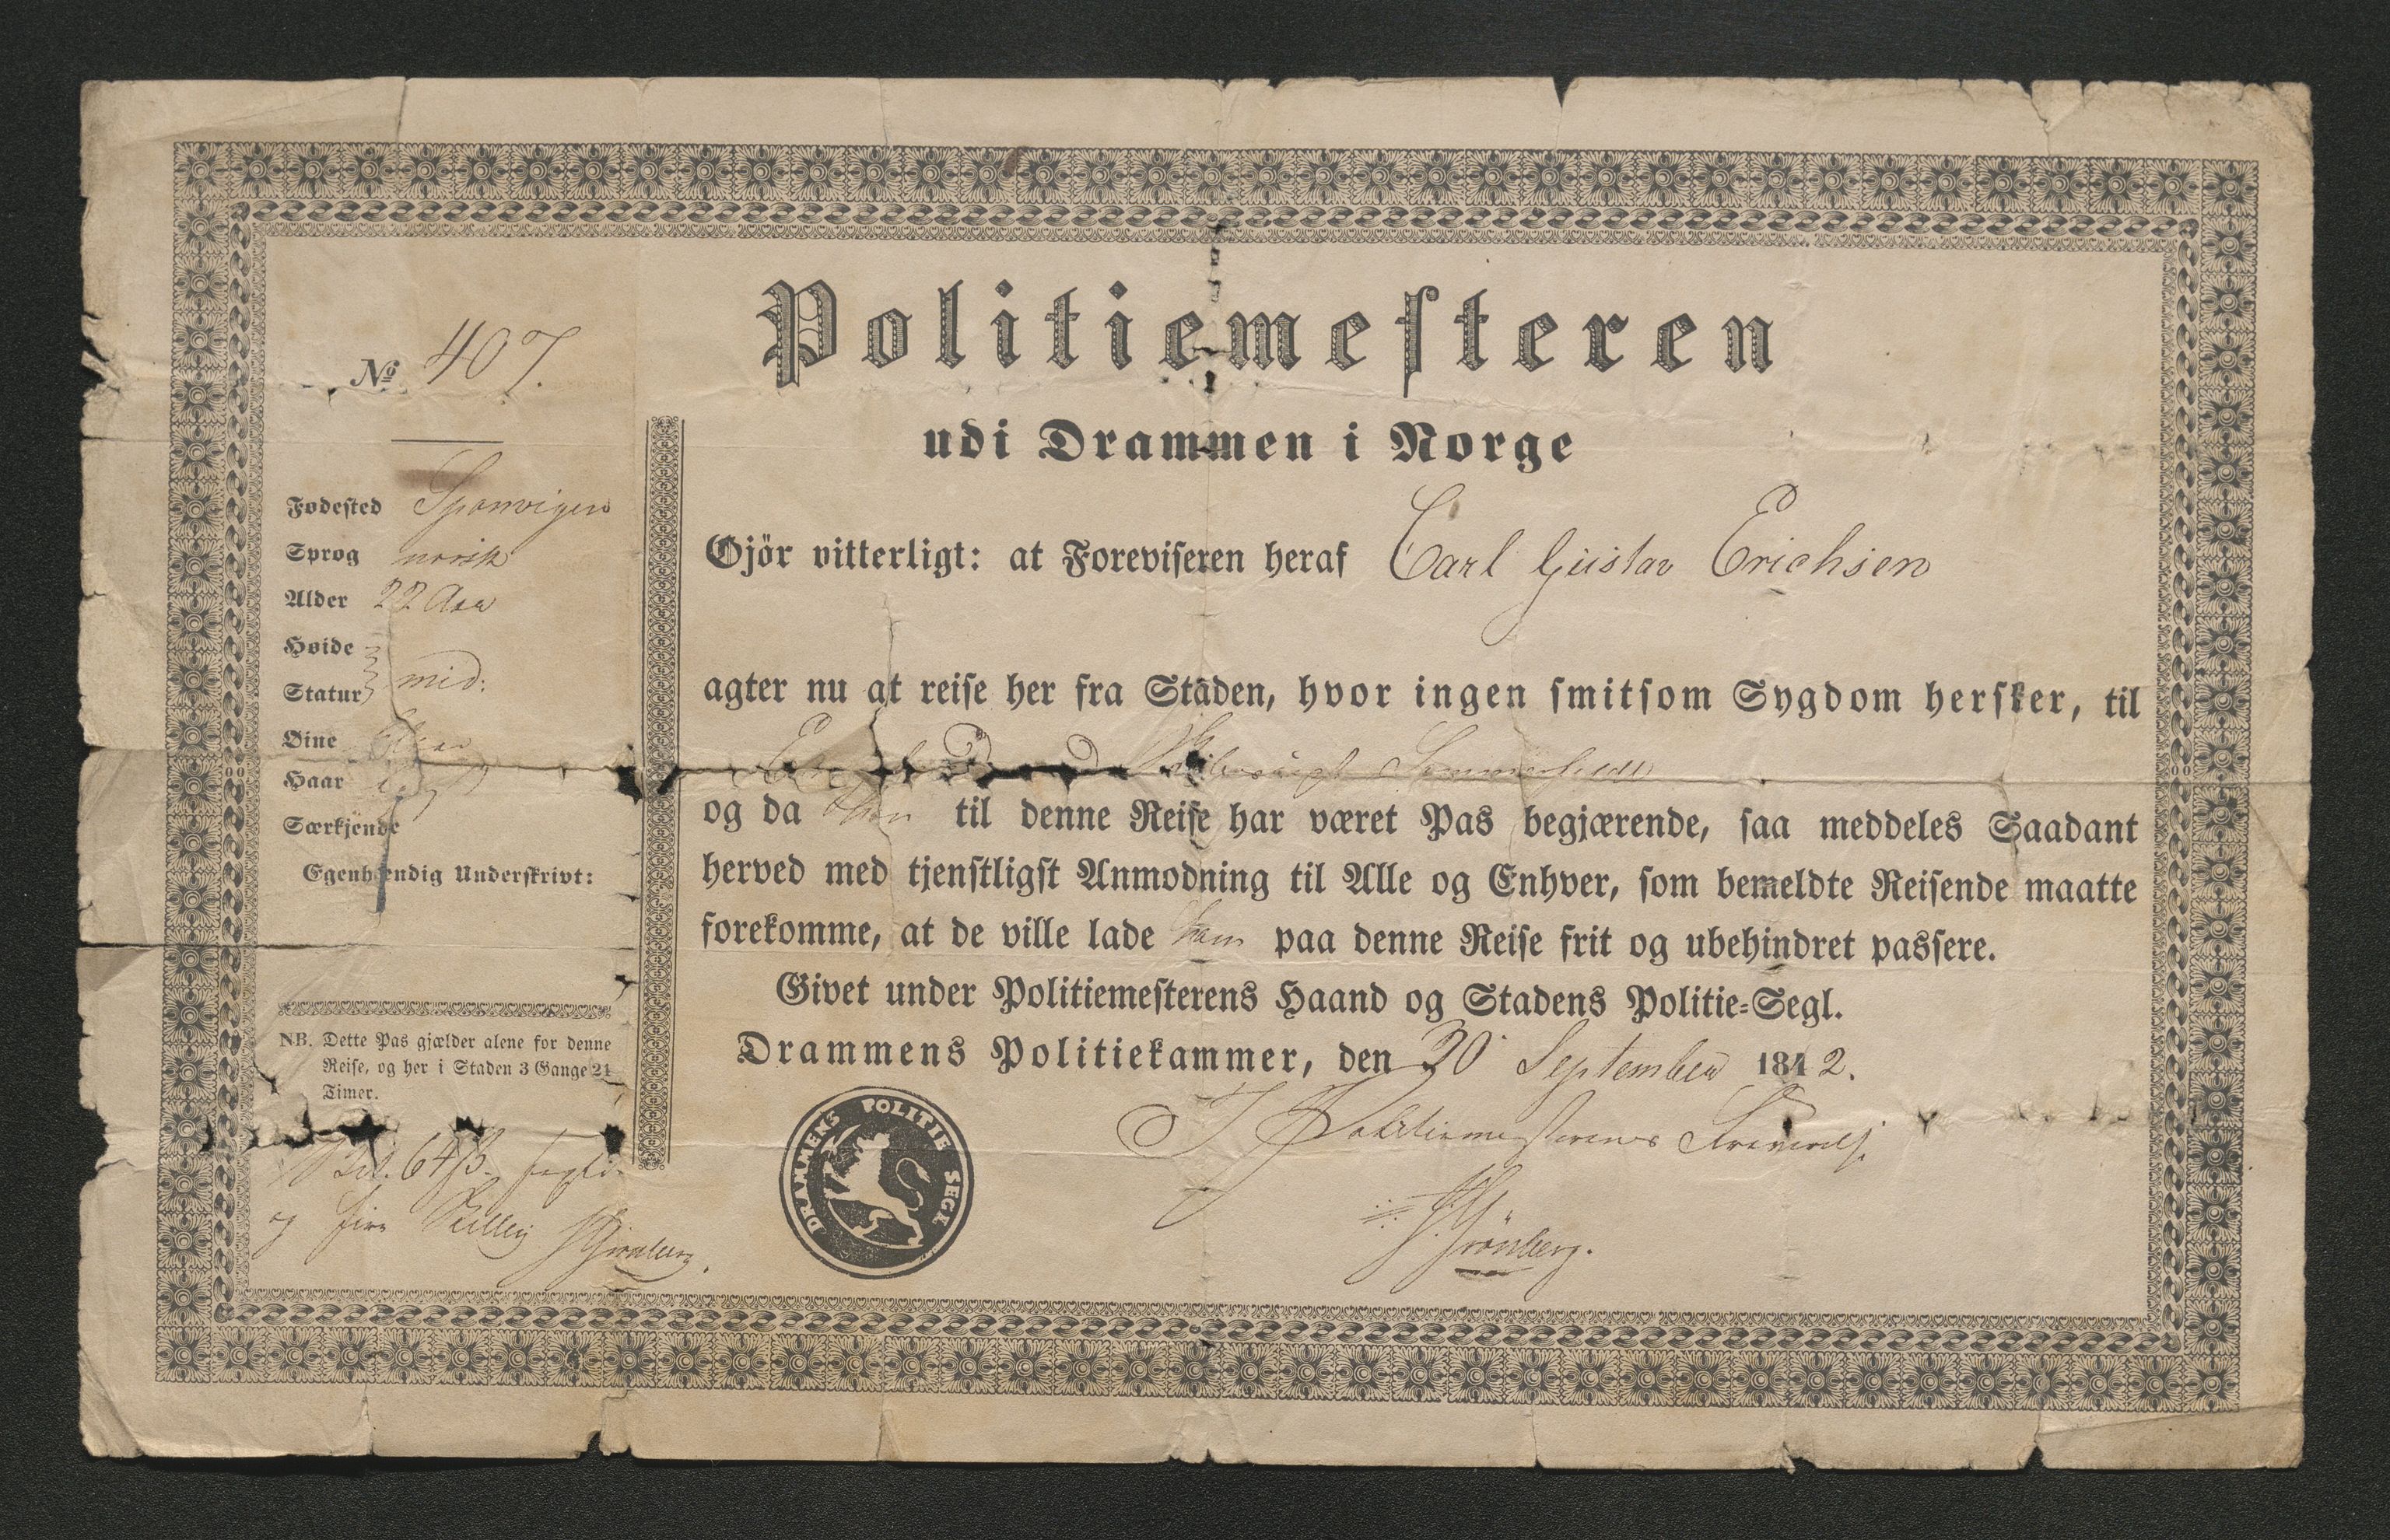 No 407.
Fødested Spanvigen
Sprog norsk
Alder 22 Aar
Høide
Statur mid:
Øine
Haar
Særkjende
Egenhændig Underskrivt:
NB. Dette Pas gjælder alene for denne
Reise, og her i Staden 3 Gange 24
Timer.
64 ß.
og fire Skilling HGrönberg.
Politiemesteren
udi Drammen i Norge
Gjör vitterligt: at Foreviseren heraf Carl Gustav Erichsen
agter nu at reise her fra Staden, hvor ingen smitsom Sygdom hersker, til
Sommerfeldt
og da han til denne Reise har været Pas begjærende, saa meddeles Saadant
herved med tjenstligst Anmodning til Alle og Enhver, som bemeldte Reisende maatte
forekomme, at de ville lade ham paa denne Reise frit og ubehindret passere.
Givet under Politiemesterens Haand og Stadens Politie-Segl.
Drammens Politiekammer, den 30 September 1842.
I Politiemesterens
HGrönberg.
DRAMMENS POLITIE SEGL